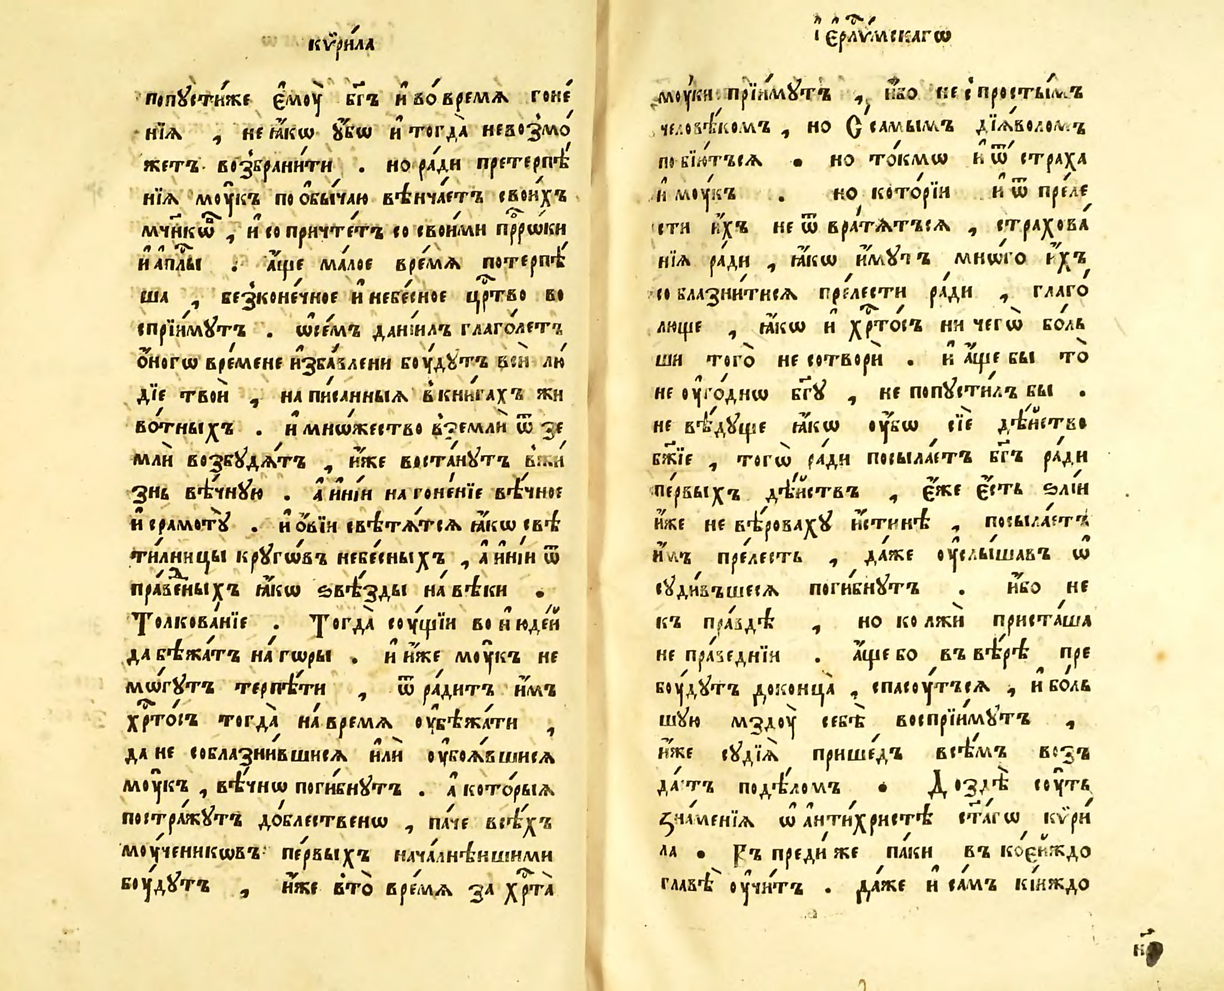 кѷри́ла
попꙋсти́же є҆моу̀ бг҃ъ и҆ во́ время гоне́
нїѧ , не ꙗ҆́кѡ у҆́бѡ и҆ тогда̀ невозмо́
жетъ возбрани́ти . но ра́ди претерпѣ́
нїѧ моу́къ по ѻ҆бы́чаю вѣнча́етъ свои́хъ
мч҃никѡⷡ , и҆ сопричте́тъ со свои́ми прⷪ҇рѡ́ки
и҆ а҆пⷭ҇лы . а҆́ще ма́лое вре́мѧ потерпѣ́
ша , безконе́чное и҆ небе́сное црⷭ҇тво во
спрїи́мутъ . ѡ҆се́мъ данїи́лъ глаго́летъ
ѻ҆́ногѡ вре́мене и҆зба́влени боу́дꙋтъ всѝ лю́
дїе твоѝ , написанныѧ в̾кни́гахъ жи
во́тныхъ . и҆ мнѡ́жество в̾землѝ ѿ зе
млѝ возбу́дѧтъ , и҆́же воста́нутъ в̾жи́
знь вѣ́чную . а҆ и҆ні́и на гоне́нїе вѣ́чное
и҆ срамотꙋ̀ . и҆ ѻ҆́вїи свѣтѧ́тсѧ ꙗ҆́кѡ свѣ
ти́лницы круго́въ небе́сныхъ , а҆ и҆ні́и ѿ
пра́веⷣныхъ ꙗ҆́кѡ ѕвѣ́зды на́ вѣки .
Толкова́нїе . Тогда̀ соу́щїи во и҆юде́и
да бѣжа́тъ на́ гѡры . и҆ и҆́же моу́къ не
мо́гутъ терпѣ́ти , ѿра́дитъ и҆̀мъ
хрⷭ҇то́съ тогда̀ на́ время оу҆бѣжа́ти ,
да не соблазни́вшисѧ и҆лѝ оу҆боѧ́вшисѧ
моу́къ , вѣ́чнѡ поги́бнутъ . а҆ кото́рыѧ
постра́жꙋтъ до́блественѡ , па́че всѣ́хъ
моу́чениковъ пе́рвыхъ нача́лнѣишими
боу́дꙋтъ , и҆́же в̾то̀ вре́мѧ за хрⷭ҇та̀
і҆ерⷭ҇ли́мскагѡ
моу́ки прїи́мꙋтъ , и҆́бо не с̾просты́мъ
человѣ́комъ , но С̾самы́мъ дїѧ́воломъ
побїю́тъсѧ . но то́кмѡ и҆ ѿ стра́ха
и҆ моу́къ . но кото́рїи и҆ ѿ пре́ле
сти и҆́хъ не ѿвратѧ́тъсѧ , страхова́
нїѧ ра́ди , ꙗ҆́кѡ и҆́мутъ мнѡ́го и҆́хъ
соблазни́тисѧ пре́лести ра́ди , глаго́
люще , ꙗ҆́кѡ и҆ хрⷭ҇то́съ ничего̀ бо́ль
ши того̀ не сотворѝ . и҆ а҆́ще бы то̀
не оу҆го́днѡ бг҃ꙋ , не попусти́лъ бы .
не вѣ́дꙋще ꙗ҆́кѡ оу҆́бѡ сїѐ дѣ́йство
бж҃їе , тогѡ̀ ра́ди посыла́етъ бг҃ъ ра́ди
пе́рвыхъ дѣ́йствъ , є҆́же є҆́сть ѕлі́и
и҆́же не вѣ́роваху и҆́стинѣ , посыла́етъ
и҆̀мъ пре́лесть , да́же оу҆слы́шавъ ѡ҆
суди́въшесѧ поги́бнутъ . и҆́бо не
къ пра́вдѣ , но ко лжѝ приста́ша
не пра́веднїи . а҆́ще бо въ вѣ́рѣ пре
боу́дꙋтъ доконца̀ , спасоу́тъсѧ , и҆ бо́ль
шую мздоу̀ себѣ̀ воспрїи́мутъ ,
и҆́же судїѧ̀ прише́дъ всѣ́мъ воз̾
да́стъ подѣло́мъ . Доздѣ̀ соу́ть
зна́менїѧ ѡ҆ а҆нти́христѣ ст҃а́гѡ кѷри́
ла . Въ преди́ же па́ки в̾ кое́йждо
главѣ̀ оу҆чи́тъ . да́же и҆ са́мъ кі́иждо